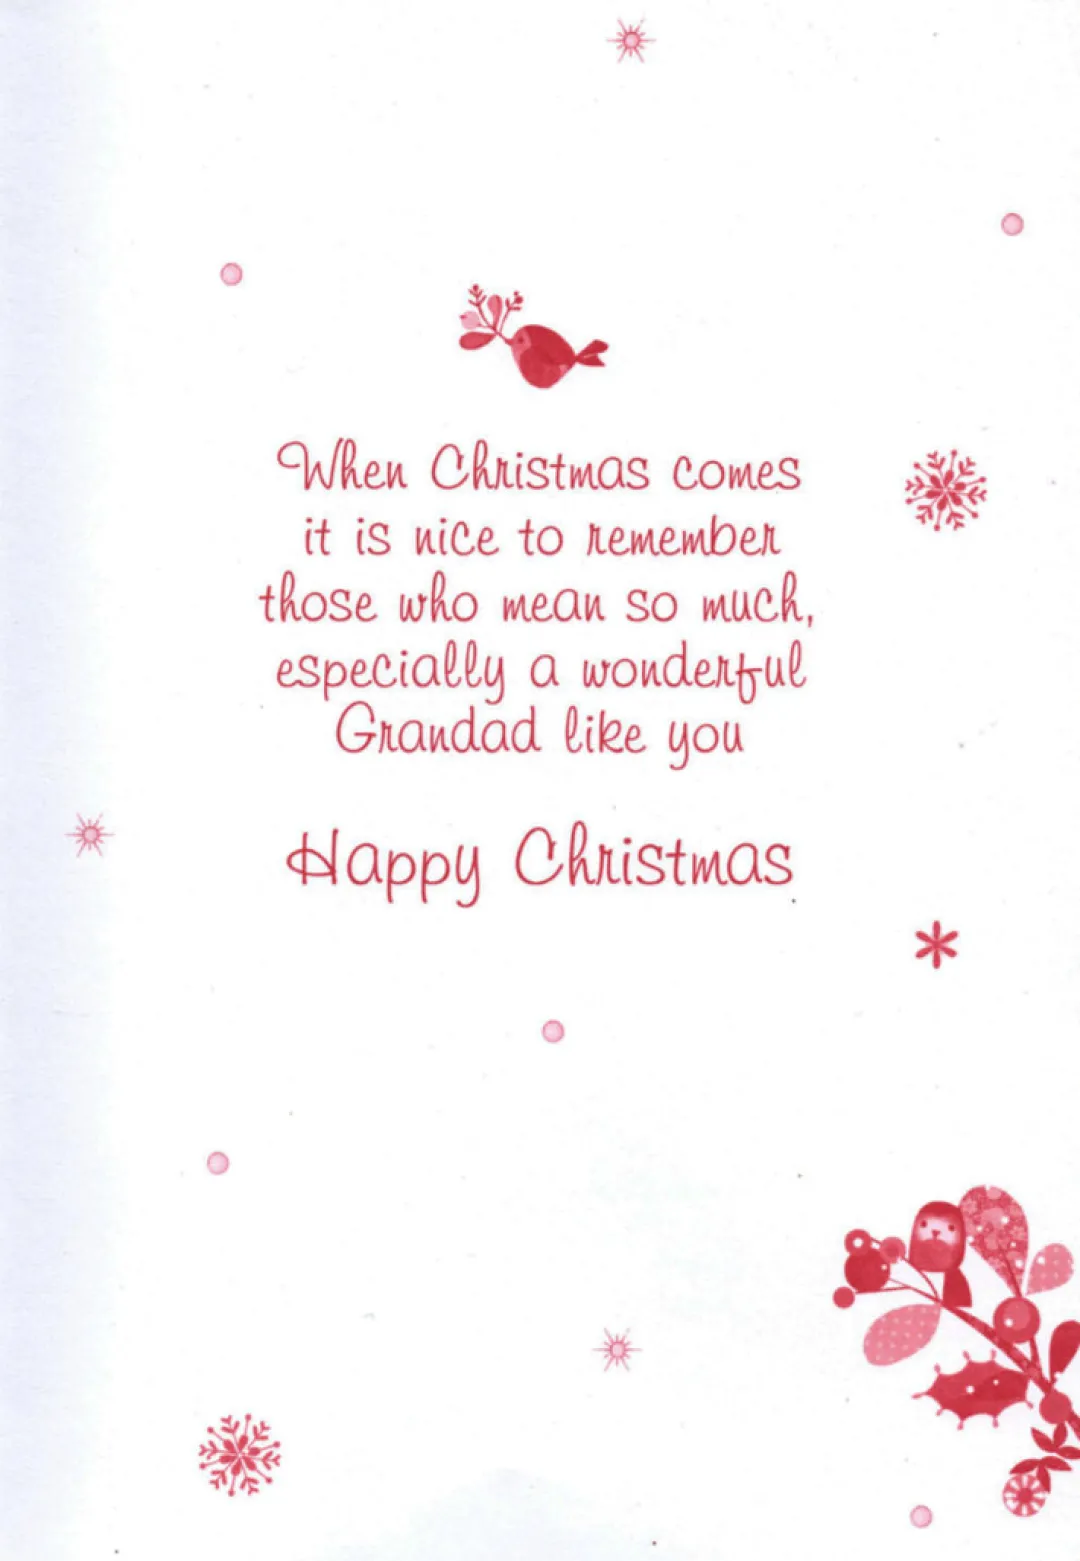 When Christmas comes
it is nice to remember
those who mean so much,
especially a wonderful
Grandad like you
Happy Christmas